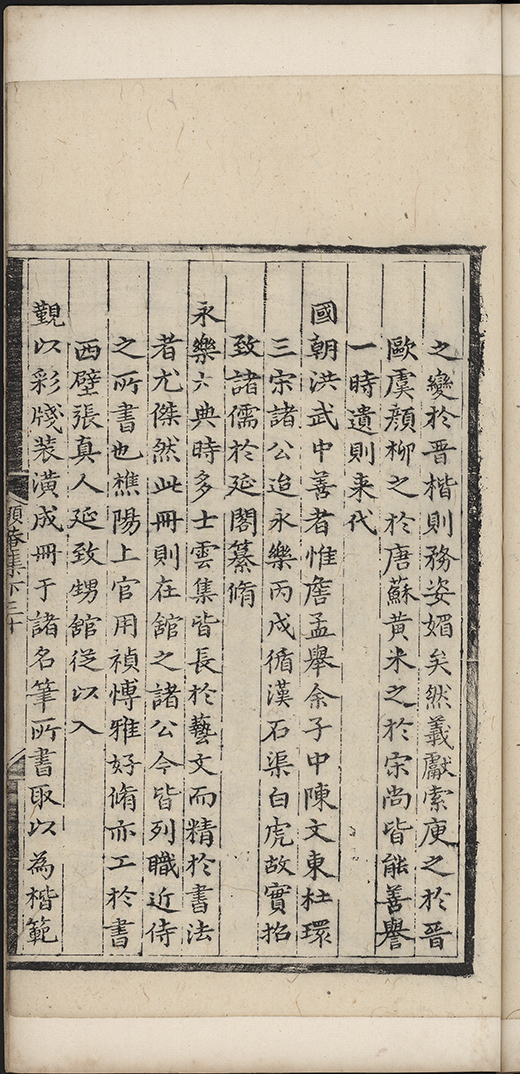 之變於晋楷則務姿媚矣然羲獻索庾之於晋
歐虞顔柳之於唐蘇黃米之於宗尚皆能善譽
一時遺則来代
國朝洪武中善者惟詹孟舉余子中陳文東杜環
三宗諸公迨永樂丙戌循漢石渠白虎故實招
致諸儒於延閣纂脩
永樂大典時多士雲集皆長於藝文而精於書法
者尤傑然此冊則在舘之諸公今皆列職近侍
之所書也樵陽上官用禎愽雅好脩亦工於書
西壁張真人延致甥舘從以入
覲以彩牋装潢成冊于諸名筆所書取以為楷範
頤菴集下三十